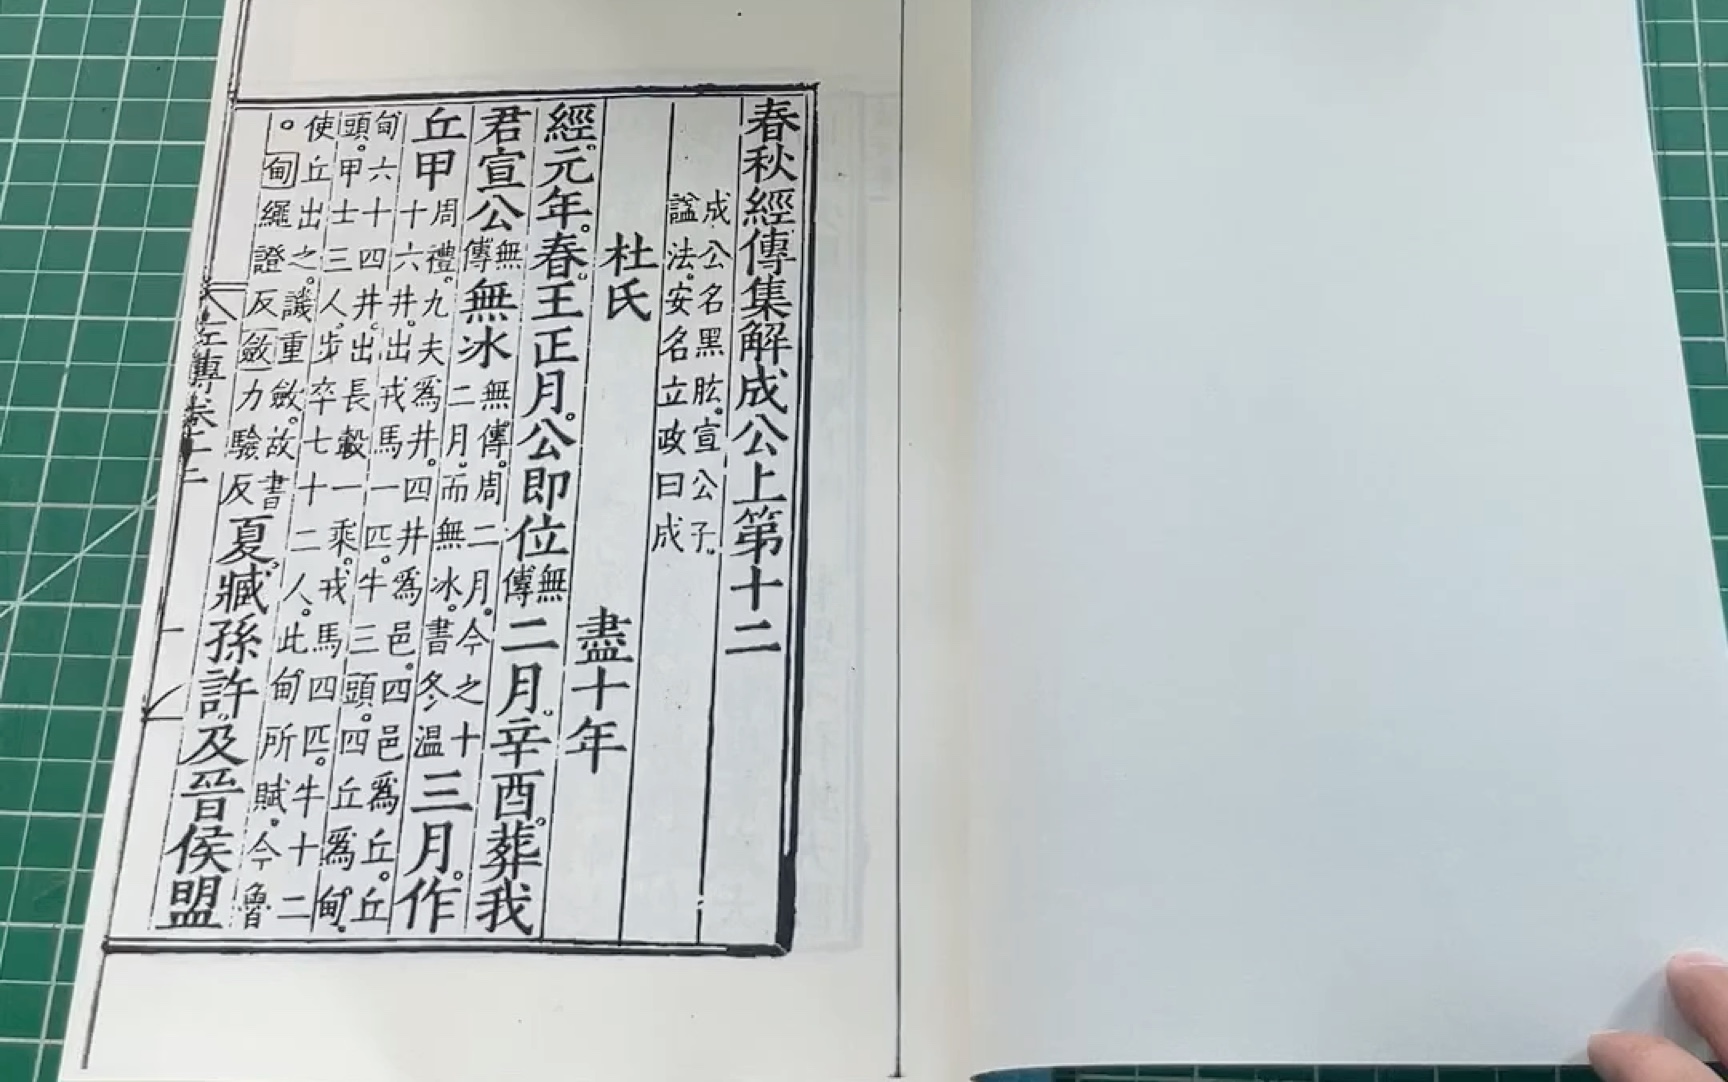 春秋經傳集解成公上第十二
成公名黑肱。宣公子。
謚法。安名立政曰成
杜氏　盡十年
經。元年。春。王正月。公即位無傳二月。辛酉。葬我
君宣公無傳無冰無傳。周二月。今之十二月。而無冰。書冬温三月。作
丘甲周禮。九夫爲井。四井爲邑。四邑爲丘。丘十六井。出戎馬一匹。牛三頭。四丘爲甸。
甸六十四井。出長轂一乘。戎馬四匹。牛十二頭。甲士三人。步卒七十二人。此甸所賦。今魯
使丘出之。譏重斂。故書。甸繩證反斂力驗反夏。臧孫許。及晉侯盟
左傳卷十二